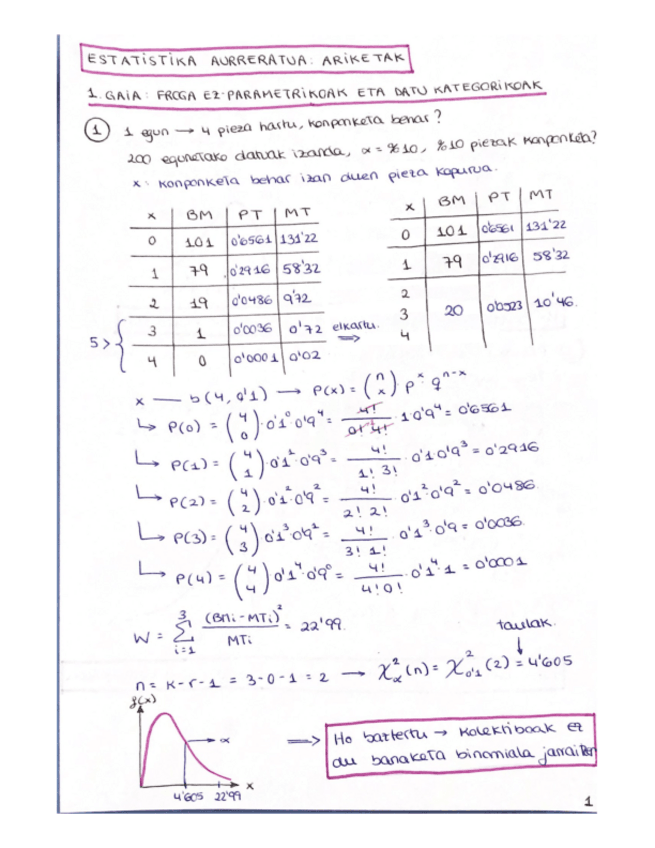 ESTATISTIKA AURRERATUA: ARIKETAK
1. GAIA: FROGA EZ-PARAMETRIKOAK ETA DATU KATEGORIKOAK
① 1 egun → 4 pieza hartu, konponketa behar?
200 egunetako datuak izanda, α = %10, %10 piezak konponketa?
x: konponketa behar izan duen pieza kopurua.
x BM PT MT
0 101 0'6561 131'22
1 79 0'2916 58'32
2 19 0'0486 9'72
3 1 0'0036 0'72
4 0 0'0001 0'02
5 > {
elkartu. ⇒
x BM PT MT
0 101 0'6561 131'22
1 79 0'2916 58'32
2
3 20 0'0523 10'46.
4
x — b(4, 0'1) → P(x) = (n x) p^x q^(n-x)
↳ P(0) = (4 0) · 0'1^0 · 0'9^4 = 4!/(0! 4!) · 1 · 0'9^4 = 0'6561
↳ P(1) = (4 1) · 0'1^2 · 0'9^3 = 4!/(1! 3!) · 0'1 · 0'9^3 = 0'2916
↳ P(2) = (4 2) · 0'1^2 · 0'9^2 = 4!/(2! 2!) · 0'1^2 · 0'9^2 = 0'0486
↳ P(3) = (4 3) 0'1^3 · 0'9^2 = 4!/(3! 1!) · 0'1^3 · 0'9 = 0'0036
↳ P(4) = (4 4) 0'1^4 · 0'9^0 = 4!/(4! 0!) · 0'1^4 · 1 = 0'0001
W = Σ_(i=1)^3 (BMi - MTi)^2 / MTi = 22'99.
taulak.
n = K - r - 1 = 3 - 0 - 1 = 2 → χ²_α (n) = χ²_0'1 (2) = 4'605
f(x)
→ α
x
4'605 22'99
⇒ Ho baztertu → kolektiboak ez
du banaketa binomiala jarraitzen
1